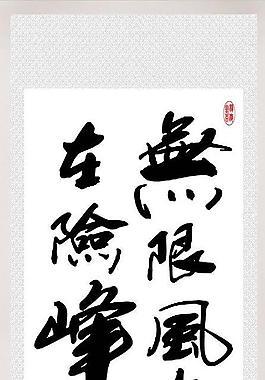 無限風
在險峰